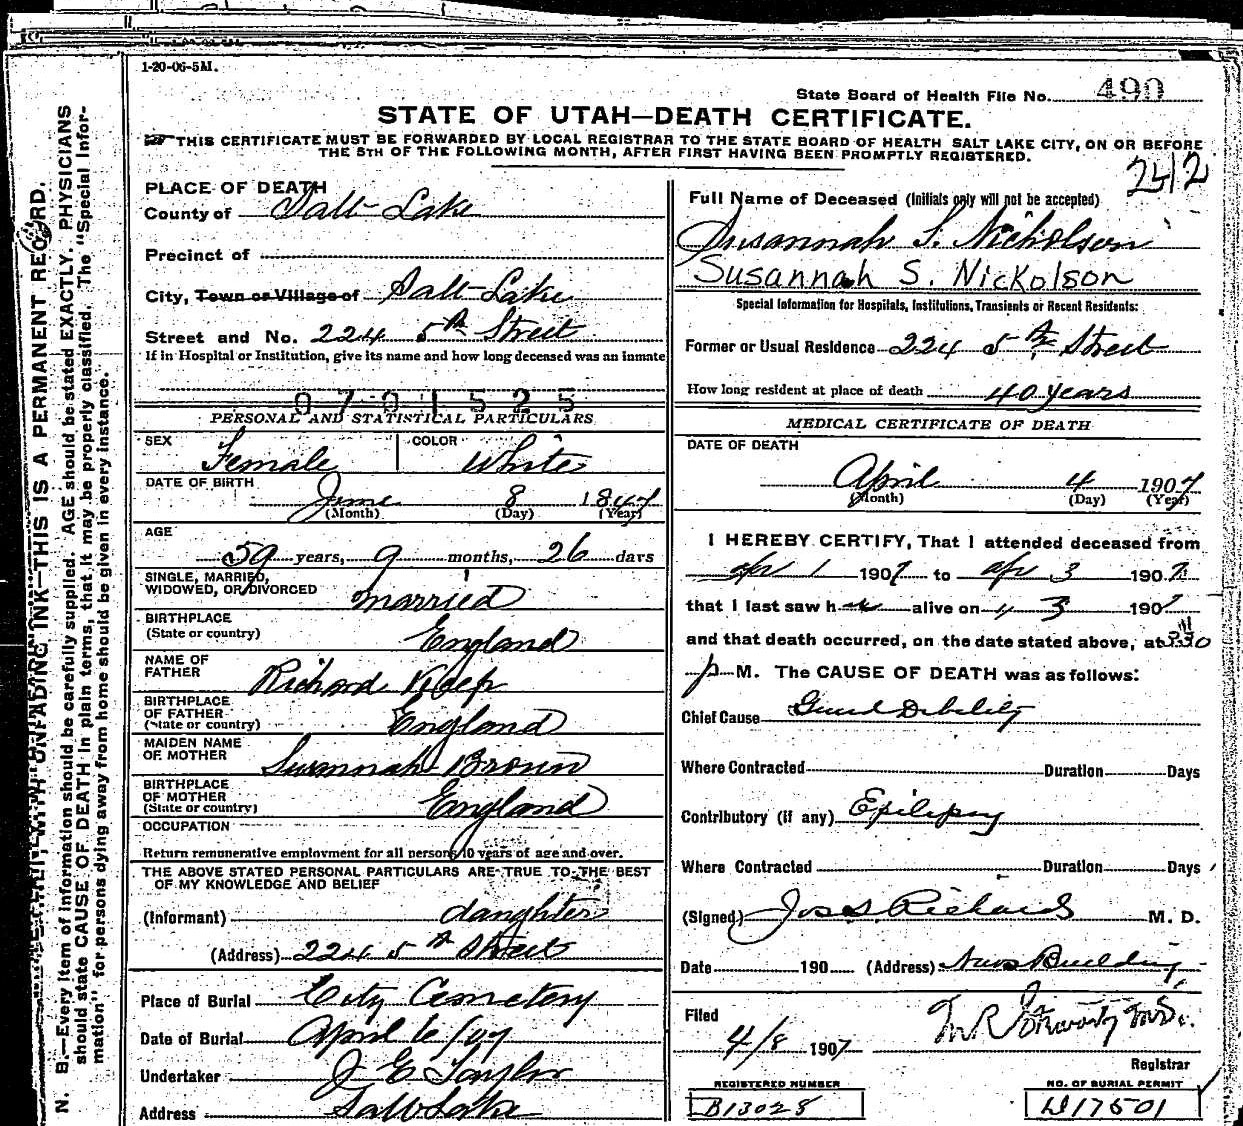 1-20-06-5M.
State Board of Health File No. 490
STATE OF UTAH—DEATH CERTIFICATE.
THIS CERTIFICATE MUST BE FORWARDED BY LOCAL REGISTRAR TO THE STATE BOARD OF HEALTH SALT LAKE CITY, ON OR BEFORE
THE 5TH OF THE FOLLOWING MONTH, AFTER FIRST HAVING BEEN PROMPTLY REGISTERED.
N. B.—Every item of information should be carefully supplied. AGE should be stated EXACTLY. PHYSICIANS
should state CAUSE OF DEATH in plain terms, that it may be properly classified. The "Special Infor-
mation" for persons dying away from home should be given in every instance.
UNFADING INK—THIS IS A PERMANENT RECORD.
PLACE OF DEATH
County of Salt Lake
Precinct of
City, Town or Village of Salt Lake
Street and No. 224 5th Street
If in Hospital or Institution, give its name and how long deceased was an inmate
0701525
PERSONAL AND STATISTICAL PARTICULARS
SEX Female COLOR White
DATE OF BIRTH
June 8 1847
(Month) (Day) (Year)
AGE
59 years, 9 months, 26 days
SINGLE, MARRIED,
WIDOWED, OR DIVORCED married
BIRTHPLACE
(State or country) England
NAME OF
FATHER Richard
BIRTHPLACE
OF FATHER
(State or country) England
MAIDEN NAME
OF MOTHER Susannah Brown
BIRTHPLACE
OF MOTHER
(State or country) England
OCCUPATION
Return remunerative employment for all persons 10 years of age and over.
THE ABOVE STATED PERSONAL PARTICULARS ARE TRUE TO THE BEST
OF MY KNOWLEDGE AND BELIEF
(Informant) daughter
(Address) 224 5th Street
Place of Burial City Cemetery
Date of Burial April 6/07
Undertaker J E Taylor
Address Salt Lake
2412
Full Name of Deceased (Initials only will not be accepted)
Susannah S. Nicholson
Susannah S. Nickolson
Special Information for Hospitals, Institutions, Transients or Recent Residents:
Former or Usual Residence 224 5th Street
How long resident at place of death 40 years
MEDICAL CERTIFICATE OF DEATH
DATE OF DEATH
April 4 1907
(Month) (Day) (Year)
I HEREBY CERTIFY, That I attended deceased from
Apr 1 1907 to Apr 3 1907
that I last saw her alive on 4 3 1907
and that death occurred, on the date stated above, at 3:30
p M. The CAUSE OF DEATH was as follows:
Chief Cause Genl Debility
Where Contracted Duration Days
Contributory (if any) Epilepsy
Where Contracted Duration Days
(Signed) Jos S Richards M. D.
Date 190 (Address) News Building
Filed
4/8 1907
Registrar
REGISTERED NUMBER
B13028
NO. OF BURIAL PERMIT
D17501